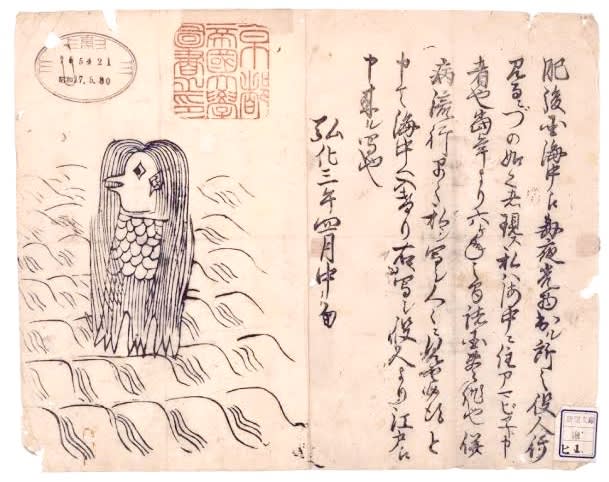 肥後国海中江毎夜光物出ル所之役人行
見るニづの如く者現ス私ハ海中ニ住アマビヱト申
者也当年より六ヶ年之間諸国豊作也併
病流行早々私ヲ写シ人々ニ見セ候得と
申て海中へ入けり右写シ役人より江戸江
申来ル写也
弘化三年四月中旬
京都
帝國大學
圖書之印
165421
昭和17.5.30